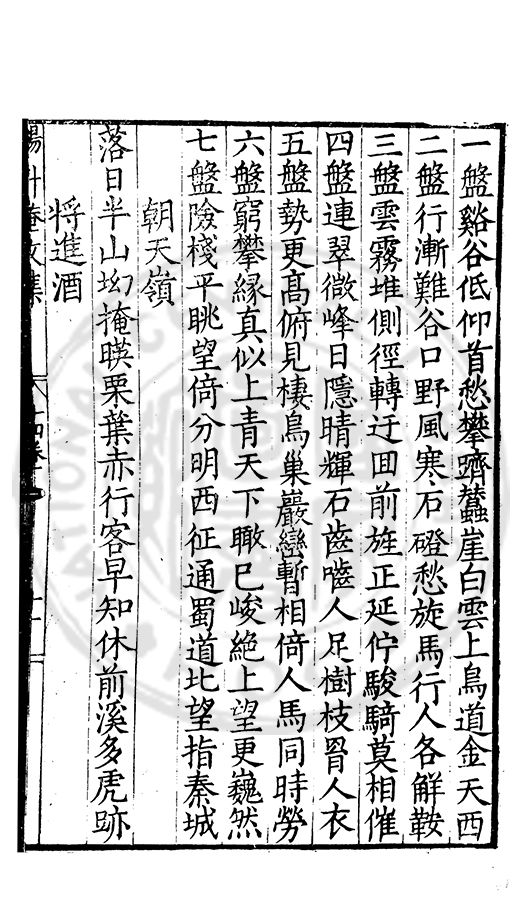 一盤谿谷低仰首愁攀躋蠶崖白雲上鳥道金天西
二盤行漸難谷口野風寒石磴愁旋馬行人各解鞍
三盤雲霧堆側徑轉迂回前旌正延佇駿騎莫相催
四盤連翠微峰日隱晴輝石齒嚙人足樹枝罥人衣
五盤勢更高俯見棲鳥巢巖巒暫相倚人馬同時勞
六盤窮攀緣真似上青天下瞰已峻絕上望更巍然
七盤險棧平眺望倍分明西征通蜀道北望指秦城
朝天嶺
落日半山坳掩暎栗葉赤行客早知休前溪多虎跡
將進酒